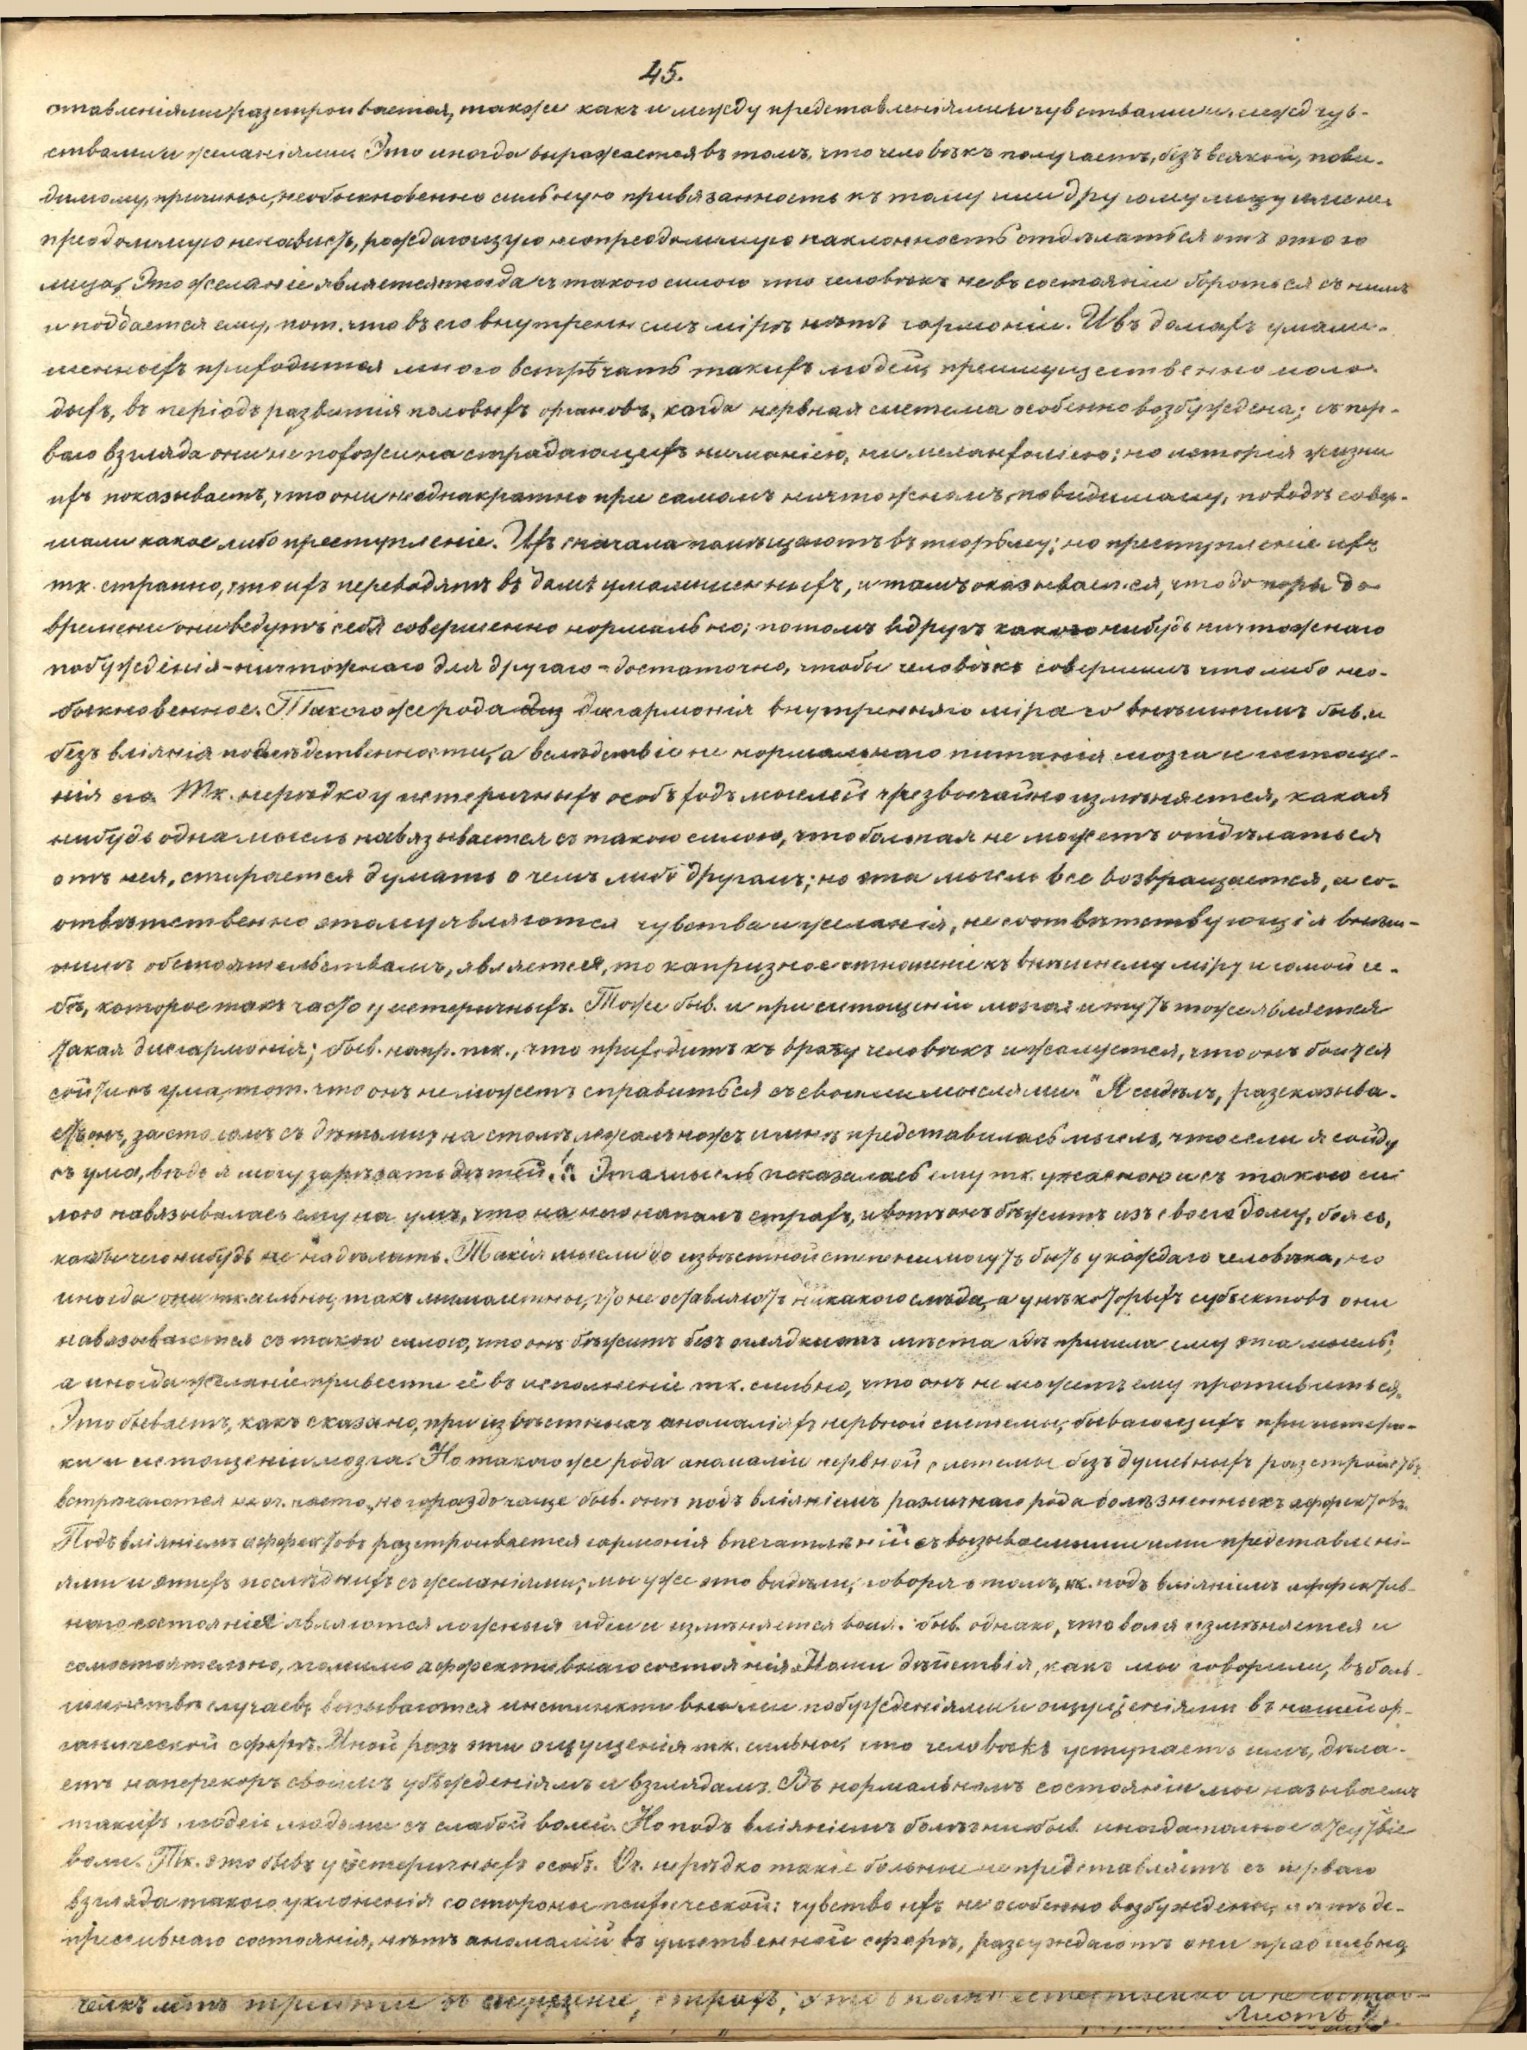 45.
ставленіями разстроивается, также какъ и между представленіями и чувствами и межд чув-
ствами и желаніями. Это иногда выражается въ томъ, что человѣкъ получаетъ, безъ всякой, пови-
димому, причины, необыкновенно сильную привязанность къ тому или другому лицу или не-
преодолимую ненависть, рождающую непреодолимую наклонность отдѣлаться отъ этого
лица. Это желаніе является иногда съ такою силою что человѣкъ не въ состояніи бороться съ нимъ
и поддается ему, пот. что въ его внутреннемъ мірѣ нѣтъ гармоніи. И въ домахъ умали-
шенныхъ приходится много встрѣчать такихъ людей, преимущественно моло-
дыхъ, въ періодъ развитія половыхъ органовъ, когда нервная система особенно возбуждена; съ пер-
ваго взгляда они не похожи на страдающихъ ни маніею, ни меланхоліею; но исторія жизни
ихъ показываетъ, что они неоднакратно при самомъ ничтожномъ, повидимому, поводѣ совер-
шали какое либо преступленіе. Ихъ сначала помѣщаютъ въ тюрьму; но преступленіе ихъ
тк. странно, что ихъ переводятъ въ домъ умалишенныхъ, и тамъ оказывается, что до поры до
времени они ведутъ себя совершенно нормально; потомъ вдругъ какого нибудь ничтожнаго
побужденія - ничтожнаго для другаго - достаточно, чтобы человѣкъ совершилъ что либо нео-
быкновенное. Такого же рода дисгармонія внутренняго міра со внѣшнимъ быв. и
безъ вліянія наслѣдственности, а вслѣдствіе не нормальнаго питанія мозга и истоще-
нія его. Тк. нерѣдко у истеричныхъ особъ ходъ мыслей чрезвычайно измѣняется, какая
нибудь одна мысль навязывается съ такою силою, что больная не можетъ отдѣлаться
отъ нея, старается думать о чемъ либо другомъ; но эта мысль все возвращается, а со-
отвѣтственно этому являются чувства и желанія, не соотвѣтствующія внѣш-
нимъ обстоятельствамъ, является, то капризное отношеніе къ внѣшнему міру и самой се-
бѣ, которое такъ часто у истеричныхъ. Тоже быв. и при истощеніи мозга: и тутъ тоже является
такая дисгармонія; быв. напр. тк., что приходитъ къ врачу человѣкъ и жалуется, что онъ боится
сойти съ ума, пот. что онъ не можетъ справиться съ своими мыслями. "Я сидѣлъ, разсказыва-
етъ онъ, за столомъ съ дѣтьми, на столѣ лежалъ ножъ и мнѣ представилась мысль, что если я сойду
съ ума, вѣдь я могу зарѣзать дѣтей." Эта мысль показалась ему тк. ужасною и съ такою си
лою навязывалась ему на умъ, что на него напалъ страхъ, и вотъ онъ бѣжитъ изъ своего дому, боясь,
какъ бы чего нибудь не надѣлать. Такія мысли до извѣстной степени могутъ быть у каждаго человѣка, но
иногда они такъ мимолетны, что не оставляютъ никакого слѣда, а у нѣкоторыхъ субъектовъ они
навязываются съ такою силою, что онъ бѣжитъ безъ оглядки отъ мѣста гдѣ пришла ему эта мысль;
а иногда желаніе привести её въ исполненіе тк. сильно, что онъ не можетъ ему противиться.
Это бываетъ, какъ сказано, при извѣстныхъ аномаліяхъ нервной системы, бывающихъ при истери-
ки и истощеніи мозга. Но такого же рода аномаліи нервной системы безъ душевныхъ разстройствъ
встрѣчаются не оч. часто, но гораздо чаще быв. онѣ подъ вліяніемъ различнаго рода болѣзненныхъ аффектовъ.
Подъ вліяніемъ аффектовъ разстроивается гармонія впечатлѣній съ вызываемыми ими представлені-
ями и этихъ послѣднихъ съ желаніями; мы уже это видѣли, говоря о томъ, кк. подъ вліяніемъ аффектив-
наго состоянія являются ложныя идеи и измѣняется воля. быв. однако, что воля измѣняется и
самостоятельно, помимо аффективнаго состоянія. Наши дѣйствія, какъ мы говорили, въ боль-
шинствѣ случаевъ вызываются инстинктивными побужденіями и ощущеніями въ нашей ор-
ганической сферѣ. Иной разъ эти ощущенія тк. сильны, что человѣкъ уступаетъ имъ, дѣла-
етъ наперекоръ своимъ убѣжденіямъ и взглядамъ. Въ нормальномъ состояніи мы называемъ
такихъ людей людьми съ слабой волей. Но подъ вліяніемъ болѣзни быв. иногда полное отсутствіе
воли. Тк. это бывъ у истеричныхъ особъ. Оч. нерѣдко такіе больные не представляютъ съ перваго
взгляда такого уклоненія со стороны психической: чувство ихъ не особенно возбуждены, нѣтъ де-
прессивнаго состоянія, нѣтъ аномалій въ умственной сферѣ, разсуждаютъ они правильно,
страхъ, это вполнѣ естественно и не состав-
Листъ